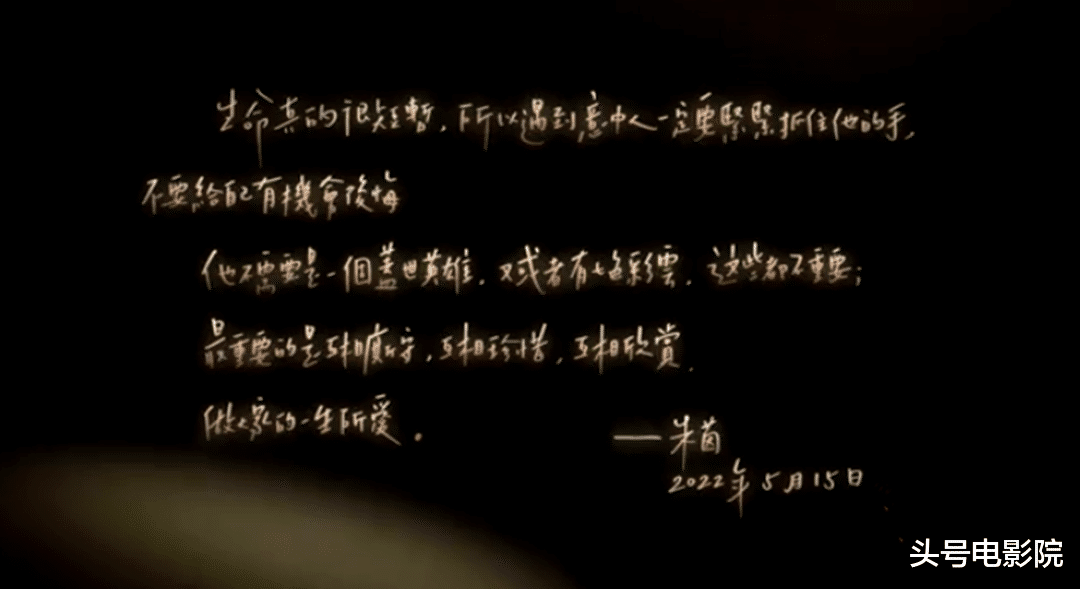 生命真的很短暫，所以遇到意中人一定要緊緊抓住他的手，
不要給自己有機會後悔
他不需要是一個蓋世英雄，或者有七色彩雲，这些都不重要；
最重要的是互相守，互相珍惜，互相欣賞，
做大家的一生所愛．
——朱茵
2022年5月15日
头号电影院